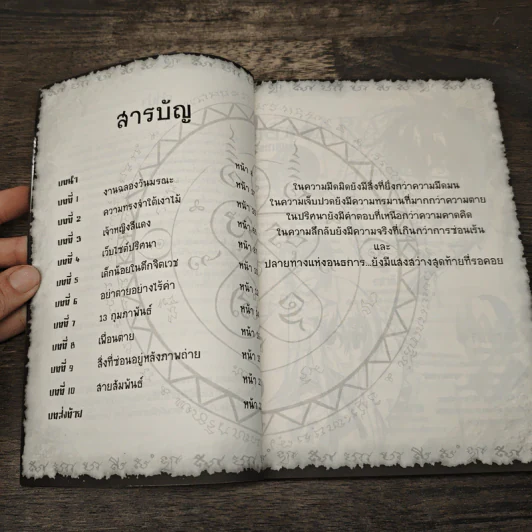 สารบัญ
บทนำ หน้า
บทที่ 1 งานฉลองวันมรณะ หน้า
บทที่ 2 ความทรงจำใต้เงาไม้ หน้า
บทที่ 3 เจ้าหญิงสีแดง หน้า
บทที่ 4 เว็บไซต์ปริศนา หน้า
บทที่ 5 เด็กน้อยในตึกจิตเวช หน้า
บทที่ 6 อย่าตายอย่างไร้ค่า หน้า
บทที่ 7 13 กุมภาพันธ์ หน้า
บทที่ 8 เพื่อนตาย หน้า
บทที่ 9 สิ่งที่ซ่อนอยู่หลังภาพถ่าย หน้า
บทที่ 10 สายสัมพันธ์ หน้า
บทส่งท้าย หน้า
ในความมืดมิดยังมีสิ่งที่ยิ่งกว่าความมืดมน
ในความเจ็บปวดยังมีความทรมานที่มากกว่าความตาย
ในปริศนายังมีคำตอบที่เหนือกว่าความคาดคิด
ในความลึกลับยังมีความจริงที่เกินกว่าการซ่อนเร้น
และ
ปลายทางแห่งอนธการ...ยังมีแสงสว่างสุดท้ายที่รอคอย